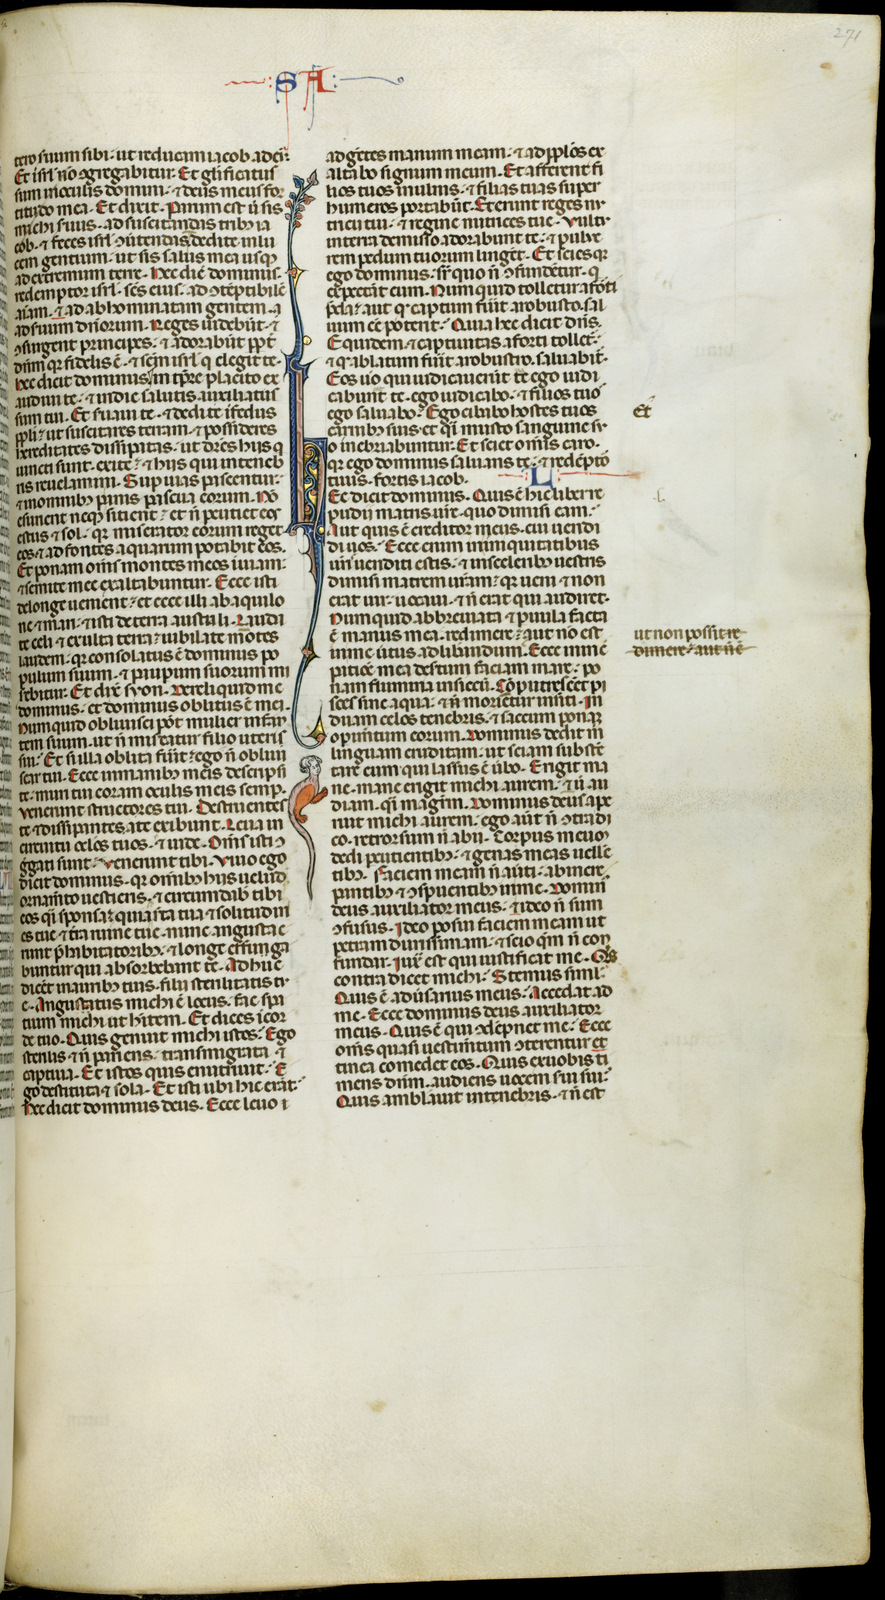 271
SA
tero suum sibi. ut reducam iacob ad eū.
Et isrl' nō ↄgregabitur. Et glificatus
sum in oculis domini. ⁊ deus meus for
titudo mea. Et dixit. Parum est ū sis
michi suus. ad suscitandas tribꝰ ia
cob. ⁊ feces isrl' ↄūtendas dedi te in lu
cem gentium. ut sis salus mea usqꝫ
ad extremum terre. Hec dic̄ dominus.
redemptor isrl'. sc̄s eius. ad ↄtēptibilē
aīam. ⁊ ad abhominatam gentem. a
ad suum dn̄orum. Reges uidebūt. ⁊
ↄsurgent principes. ⁊ adorabūt ppt̄
dn̄m qr fidelis ē. ⁊ sc̄m isrl' q elegit te.
Hec dicit dominus. in tp̄re placito ex
audiui te. ⁊ in die salutis auxiliatus
sum tui. Et suaui te. ⁊ dedi te ī fedus
ppli. ut suscitares terram. ⁊ possideres
hereditates dissipatas. ut dr̄es hijs q
uincti sunt. exite. ⁊ hijs qui in teneb
ris reuelamini. Sup uias pascentur.
⁊ in omnibꝰ planis pascua eorum. Nō
esurient neqꝫ sitient. ⁊ n̄ pcutiet eos
estus ⁊ sol. qr miserator eorum reget
eos. ⁊ ad fontes aquarum potabit eos.
Et ponam om̄s montes meos in uiam.
⁊ semite mee exaltabuntur. Ecce isti
de longe uenient. ⁊ et ecce illi ab aquilo
ne ⁊ mari. ⁊ isti de terra australi. Lauda
te celi ⁊ exulta terra. iubilate mōtes
laudem. qr consolatus ē dominus po
pulum suum. ⁊ paupum suorum mi
sebitur. Et dix̄ syon. Dereliquid me
dominus. et dominus oblitus ē mei.
Numquid obliuisci pōt mulier infan
tem suum. ut n̄ miseatur filio uteri s
sui. Et si illa oblita fūit. ego n̄ obliui
scar tui. Ecce in manibꝰ meis descripsi
te. muri tui coram oculis meis semp.
Venerunt structores tui. Destruentes
te ⁊ dissipantes a te exibunt. Leua in
circuitu oclos tuos. ⁊ uide. Om̄s isti ↄ
ggati sunt. venerunt tibi. Viuo ego
dicit dominus. qr om̄ibꝰ hijs uelud
ornamto uestieris. ⁊ circumdab tibi
eos q̄i sponsa. quia sta tua ⁊ solitudin
es tue ⁊ tr̄a ruine tue. nunc angusta e
runt p̄ habitatoribꝰ. ⁊ longe effuga
buntur qui absorbebant te. Adhuc
dicēt in auribꝰ tuis. filii sterilitatis tu
e. Angustus michi ē locus. fac spa
tium michi ut hītem. Et dices i cor
de tuo. Quis genuit michi istos. Ego
sterilis ⁊ n̄ pariens. transmigrata ⁊
captiua. Et istos quis enutriuit. E
go destituta ⁊ sola. Et isti ubi hic erāt.
Hec dicit dominus deus. Ecce leuo i
ad gētes manum meam. ⁊ ad pplōs ex
altabo signum meum. Et afferent fi
lios tuos in ulnis. ⁊ filias tuas super
humeros portabūt. Et erunt reges nu
tricii tui. ⁊ regine nutrices tue. Vultu
in terra demisso adorabunt te. ⁊ pulue
rem pedum tuorum linget. Et scies qr
ego dominus. sr̄ quo n̄ ↄfundētur. q
expectāt eum. Numquid tolletur a forti
pda. aut q captum fūit a robusto. sal
uum eē poterit. Quia hec dicit dn̄s.
Equidem. ⁊ captiuitas a forti tollet.
⁊ qd ablatum fūit a robusto. saluabit.
Eos uo qui iudicauerūt te ego iudi
cabunt te. ego iudicabo. ⁊ filios tuo
ego saluabo. Ego cibabo hostes tuos
carnibꝰ suis. et q̄i musto sanguine su
o inebriabuntur. Et sciet om̄is caro.
qr ego dominus saluans te. ⁊ redēptō
tuus. fortis iacob. L
Ec dicit dominus. Quis ē hic liber re
pudii matris ur̄e. quo dimisi eam.
Aut quis ē creditor meus. cui uendi
di uos. Ecce enim in iniquitatibus
ur̄is uenditi estis. ⁊ in sceleribꝰ uestris
dimisi matrem ur̄am. qr ueni ⁊ non
erat uir. uocaui. ⁊ n̄ erat qui audiret.
Numquid abbreuiata ⁊ puula facta
ē manus mea. redimere. aut nō est
in me uirtus ad libandum. Ecce in inc̄
patiōe mea destum faciam mare. po
nam flumina in siccū. Cōputrescēt pi
sces sine aqua. ⁊ morientur in siti. In
duam celos tenebris. ⁊ saccum ponaꝫ
opimtum eorum. Dominus dedit m̄
linguam eruditam. ut sciam substē
tare eum qui lassus ē ubo. Erigit ma
ne. mane erigit michi aurem. ⁊ ut au
diam. q̄i magrm. Dominus deus ape
ruit michi aurem. ego aūt n̄ ↄtradi
co. retrorsum n̄ abii. Corpus meuꝫ
dedi pcutientibꝰ. ⁊ genas meas uelle
tibꝰ. faciem meam n̄ auti. ab incre
pantibꝰ ⁊ ↄspuentibus in me. Domin
deus auxiliator meus. ⁊ ideo n̄ sum
ↄfusus. Ideo posui faciem meam ut
petram durissimam. ⁊ scio qm̄ n̄ con
fundar. Iux̄ est qui iustificat me. Qis
contradicet michi. Stemus simul.
Quis ē aduersarius meus. Accedat ad
me. Ecce dominus deus auxiliator
meus. Quis ē qui ↄdēpnet me. Ecce
om̄s quasi uestimtum ↄterentur et
tinea comedet eos. Quis ex uobis ti
mens dn̄m. audiens uocem sui sui.
Quis amblauit in tenebris. ⁊ n̄ est
Et
L.
ut non possim re
dimere. aut n̄ ē